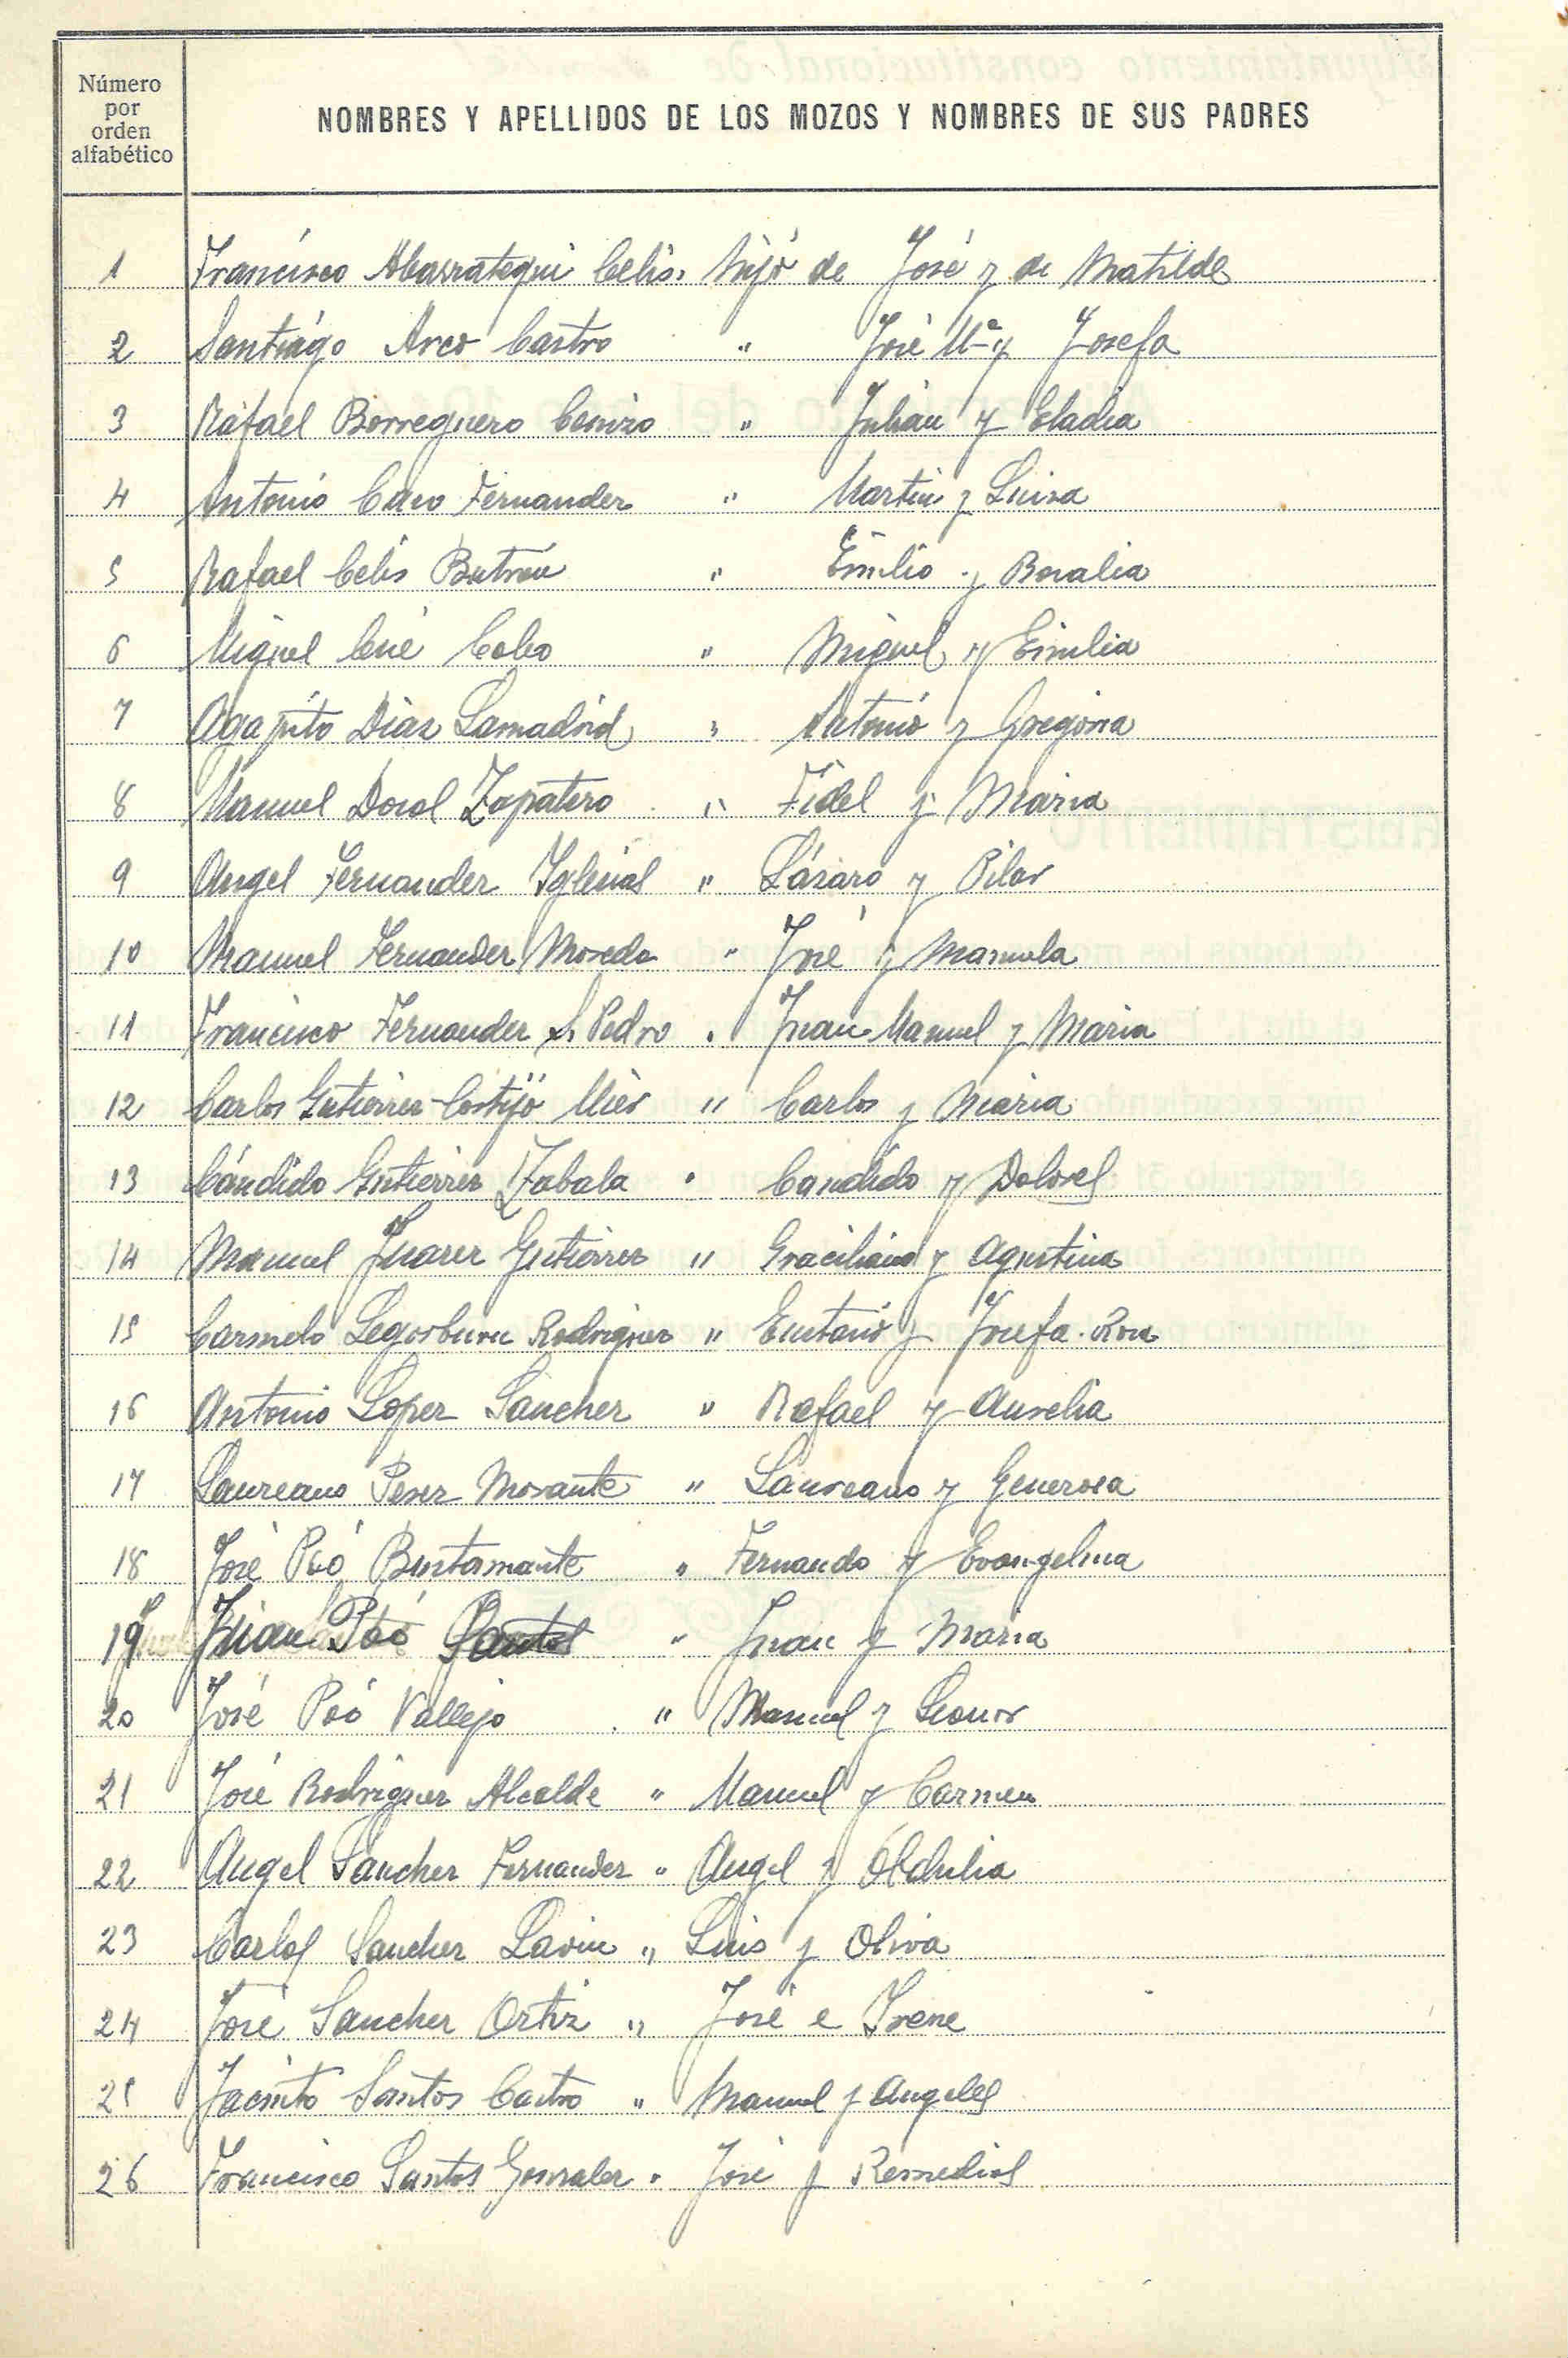 Número por orden alfabético
NOMBRES Y APELLIDOS DE LOS MOZOS Y NOMBRES DE SUS PADRES
1 Francisco Abarrategui Celis. hijo de José y de Matilde
2 Santiago Arco Castro " José Mª y Josefa
3 Rafael Borreguero " Julián y Eladia
4 Antonio Caro Fernandez " Martin y Luisa
5 Rafael Celis Butrón " Emilio y Rosalia
6 Miguel Cué Cobo " Miguel y Emilia
7 Agapito Diaz Lamadrid " Antonio y Gregoria
8 Manuel Doval Zapatero " Fidel y Maria
9 Angel Fernandez Iglesias " Lázaro y Pilar
10 Manuel Fernandez Moreda " José y Manuela
11 Francisco Fernandez S. Pedro " Juan Manuel y Maria
12 Carlos Gutierrez-Cortijo Mier " Carlos y Maria
13 Cándido Gutierrez Zabala " Candido y Dolores
14 Manuel Juarez Gutierrez " Graciliano y Agustina
15 Carmelo Legorburu Rodriguez " Eustasio y Josefa-Rosa
16 Antonio Lopez Sanchez " Rafael y Aurelia
17 Laureano Perez Morante " Laureano y Generosa
18 José Poó Bustamante " Fernando y Evangelina
19 Juan Poó Santos " Juan y Maria
20 José Poó Vallejo " Manuel y Leonor
21 José Rodriguez Alcalde " Manuel y Carmen
22 Angel Sanchez Fernandez " Angel y Obdulia
23 Carlos Sanchez Lavin " Luis y Oliva
24 José Sanchez Ortiz " José e Irene
25 Jacinto Santos Castro " Manuel y Angeles
26 Francisco Santos Gonzalez " José y Remedios